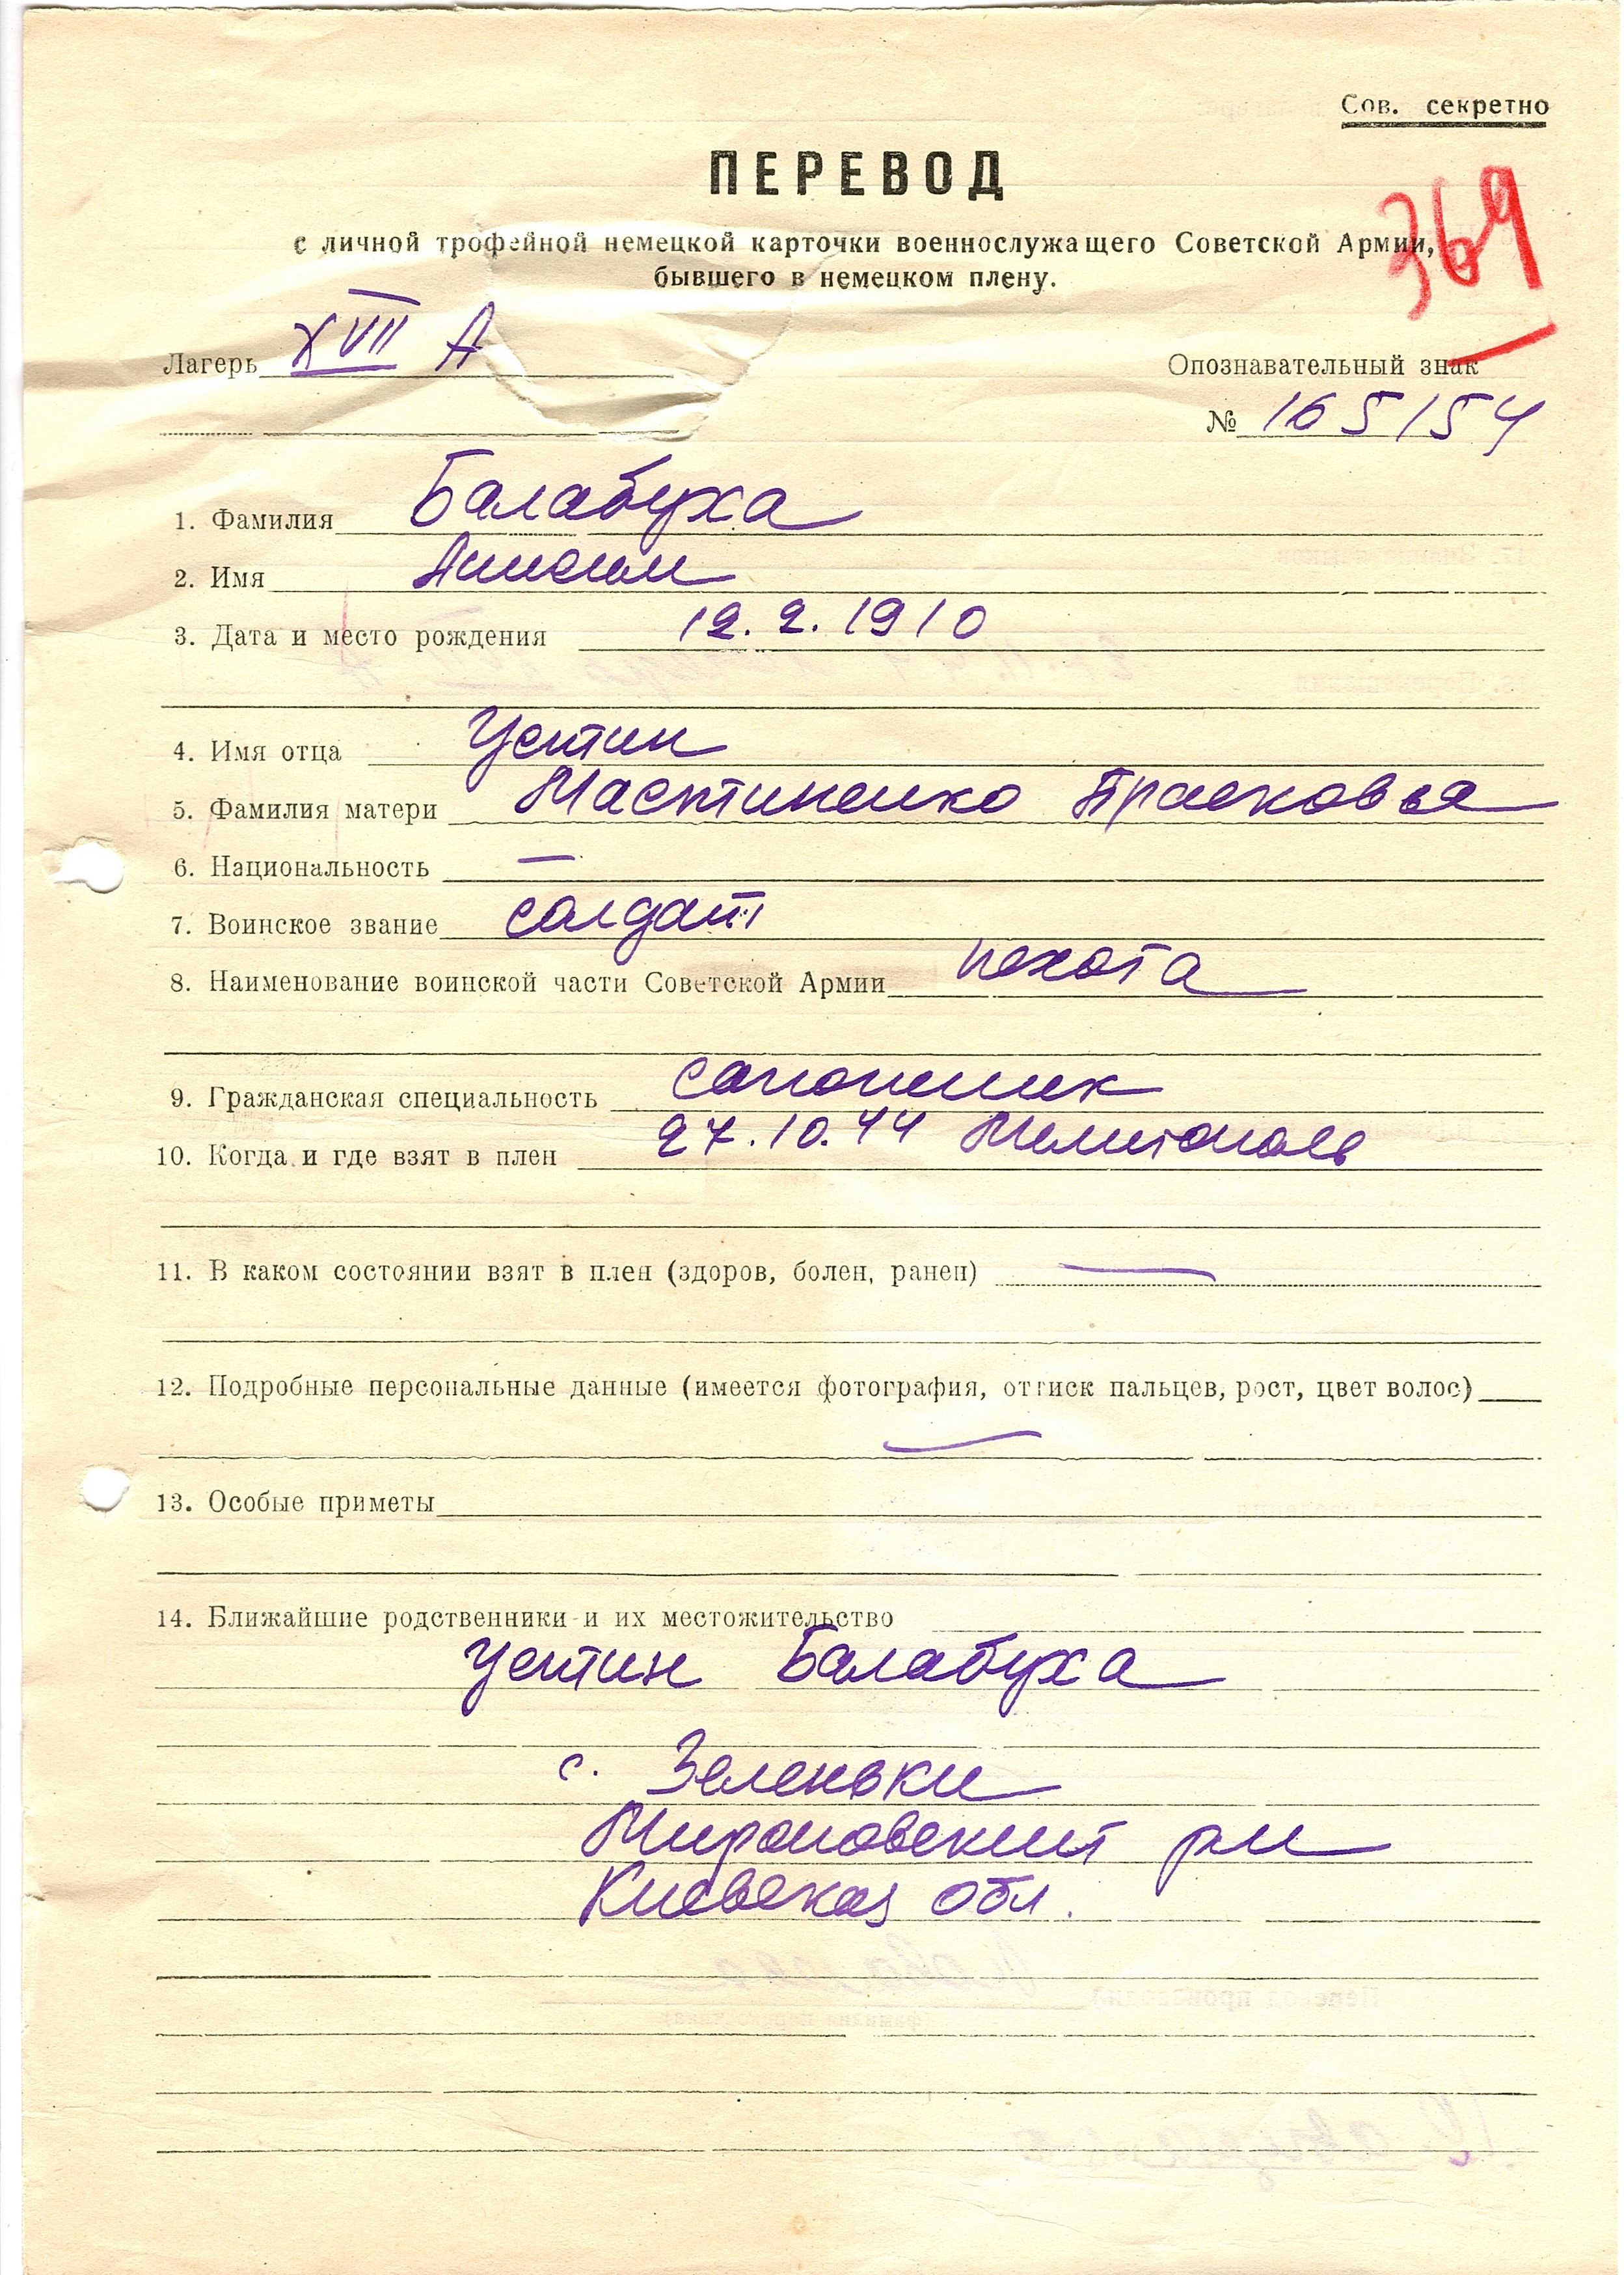 Сов. секретно
ПЕРЕВОД
369
с личной трофейной немецкой карточки военнослужащего Советской Армии,
бывшего в немецком плену.
Лагерь XVII А
Опознавательный знак
№ 165154
1. Фамилия Балабуха
2. Имя Анисим
3. Дата и место рождения 12. 2. 1910
4. Имя отца Устин
5. Фамилия матери Мастиненко Прасковья
6. Национальность —
7. Воинское звание солдат
8. Наименование воинской части Советской Армии пехота
9. Гражданская специальность сапожник
10. Когда и где взят в плен 27.10.44 Мелитополь
11. В каком состоянии взят в плен (здоров, болен, ранен) —
12. Подробные персональные данные (имеется фотография, оттиск пальцев, рост, цвет волос)
—
13. Особые приметы
14. Ближайшие родственники и их местожительство
Устин Балабуха
с. Зеленьки
Мироновский рн
Киевская обл.